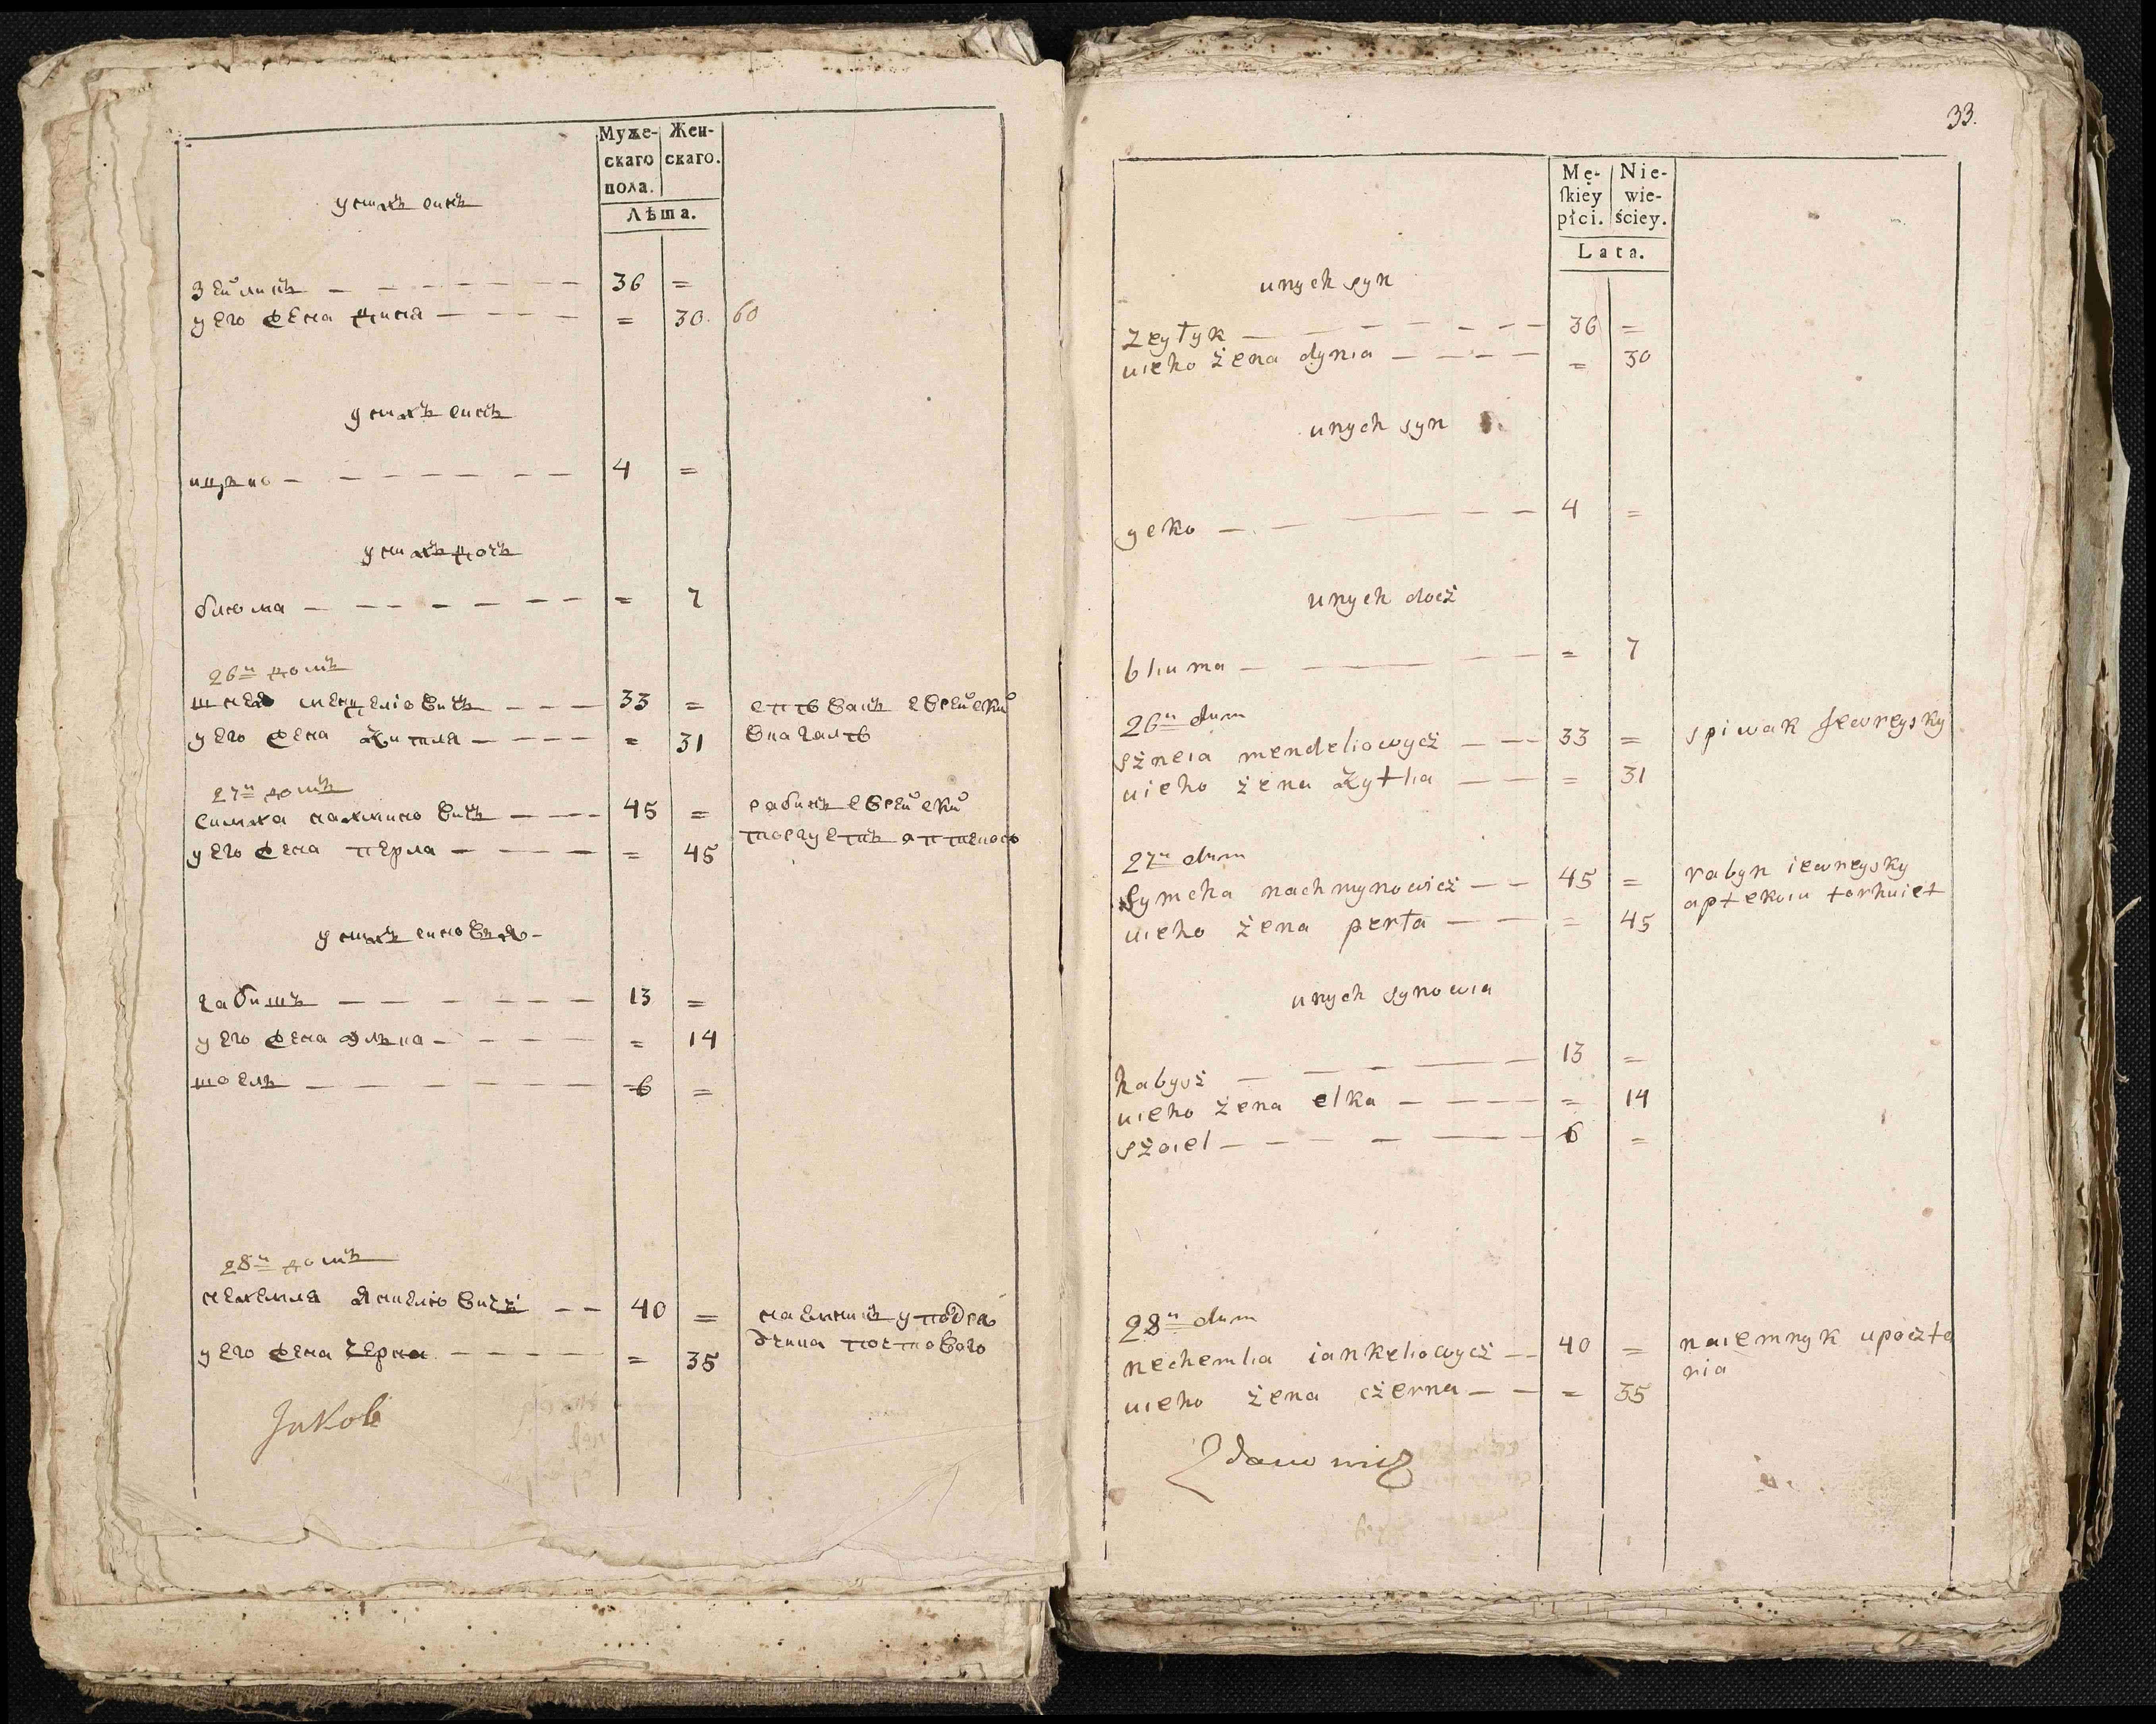 Муже-
скаго
пола.
Жен-
скаго.
Лѣта.
у нихъ синъ
Зейликъ — — — — — — — 36 =
у его жена дина — — — — = 30. 60
у нихъ синъ
ицько — — — — — — — 4 =
у нихъ дочъ
блюма — — — — — — — = 7
26й домъ
шнея менделіовичъ — — — 33 = спѣвакъ еврейский
у его жена житля — — — — = 31 вкагалѣ
27й домъ
симха нахминовичъ — — — 45 = рабинъ еврейский
у его жена перла — — — — = 45 торгуетъ аптекою
у нихъ синовья
габишъ — — — — — — 13 =
у его жена элька — — — — = 14
шоель — — — — — — — 6 =
28й домъ
нехемля янкеліовичъ — — 40 = наемникъ у подра
у его жена черна — — — — — = 35 дчика почтового
Jakob
33.
Mę-
ſkiey
płci.
Nie-
wie-
ściey.
Lata.
unych syn
Zeyłyk — — — — — — — 36 =
uieho żena dynia — — — — = 30
unych syn
yeko — — — — — — 4 =
unych docż
bliuma — — — — — = 7
26й dum
sżneia mendeliowycż — — 33 = spiwak Jewreysky
uieho żena żytlia — — = 31
27й dum
Symcha nachmynowicż — — 45 = rabyn iewreysky
aptekoiu torhuiet
uieho żena perła — — — = 45
unych synowia
habysż — — — — — 13 =
uieho żena elka — — — — = 14
sżoiel — — — — — — 6 =
28й dum
nechemlia iankeliowycż — — 40 = naiemnyk upocżta
ria
uieho żena cżerna — — = 35
Zdanowicz